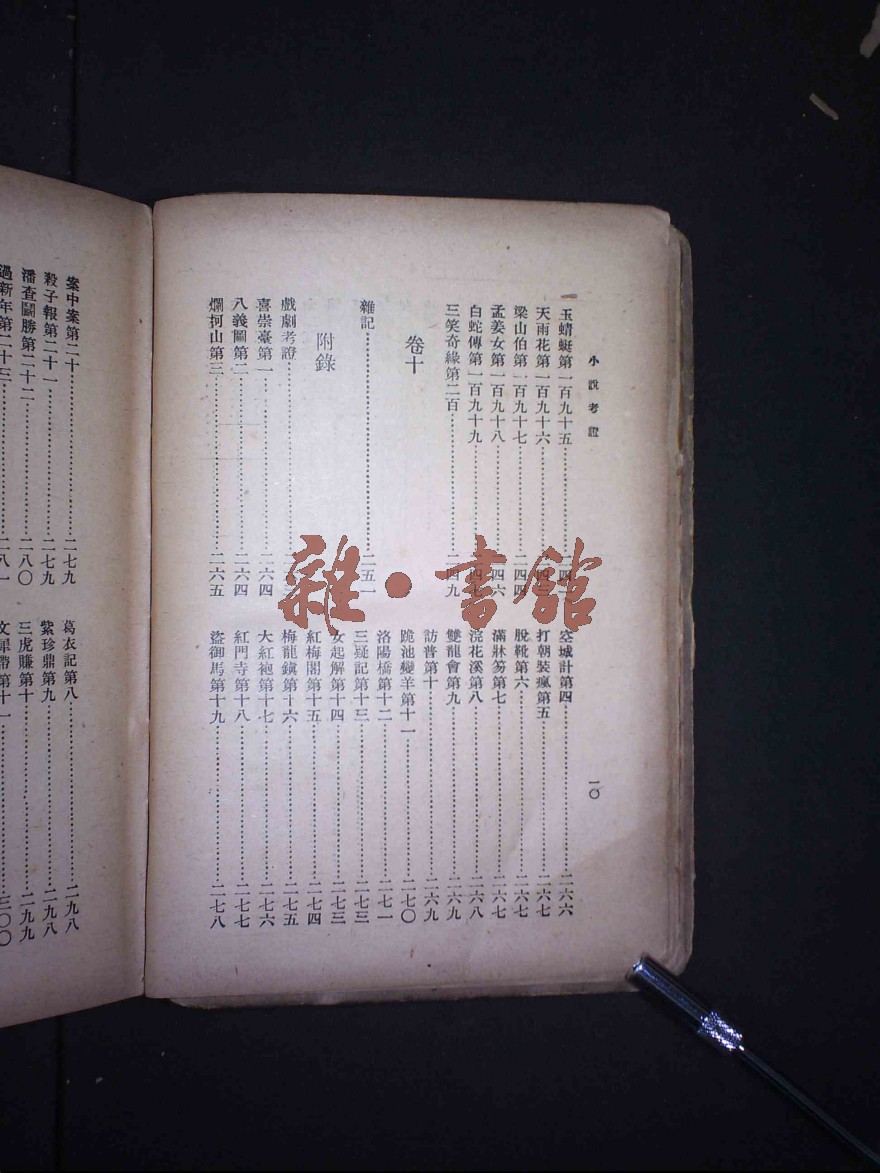 小說考證
一〇
玉蜻蜓第一百九十五……二四二
天雨花第一百九十六……二四三
梁山伯第一百九十七……二四四
孟姜女第一百九十八……二四六
白蛇傳第一百九十九……二四七
三笑奇緣第二百……二四九
卷十
雜記……二五一
附錄
戲劇考證
喜崇臺第一……二六四
八義圖第二……二六四
爛柯山第三……二六五
空城計第四……二六六
打朝裝瘋第五……二六七
脫靴第六……二六七
滿牀笏第七……二六七
浣花溪第八……二六八
雙龍會第九……二六九
訪普第十……二六九
跪池變羊第十一……二七〇
洛陽橋第十二……二七一
三疑記第十三……二七三
女起解第十四……二七三
紅梅閣第十五……二七四
梅龍鎮第十六……二七五
大紅袍第十七……二七六
紅門寺第十八……二七七
盜御馬第十九……二七八
案中案第二十……二七九
殺子報第二十一……二七九
潘查鬭勝第二十二……二八〇
過新年第二十三……二八一
葛衣記第八……二九八
紫珍鼎第九……二九八
三虎賺第十……二九九
文犀帶第十一……三〇〇
雜·書館